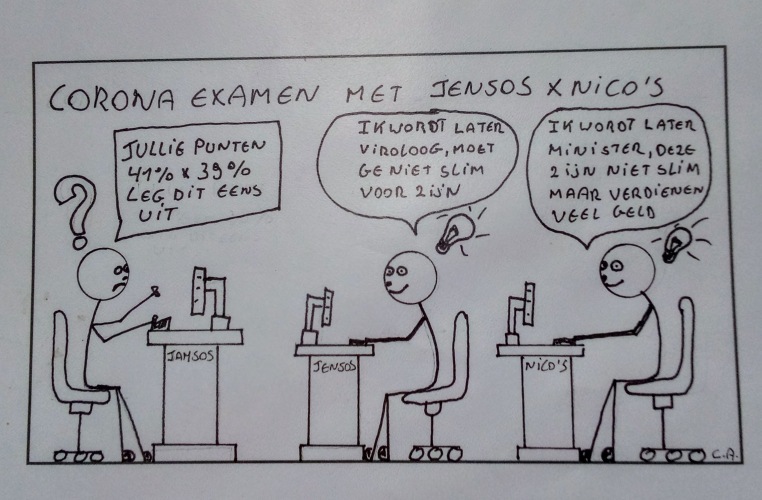 CORONA EXAMEN MET JENSOS X NICO'S
JULLIE PUNTEN
41% X 39%
LEG DIT EENS
UIT
IK WORDT LATER
VIROLOOG, MOET
GE NIET SLIM
VOOR ZIJN
IK WORDT LATER
MINISTER, DEZE
ZIJN NIET SLIM
MAAR VERDIENEN
VEEL GELD
?
JAMSOS
JENSOS
NICO'S
C.A.